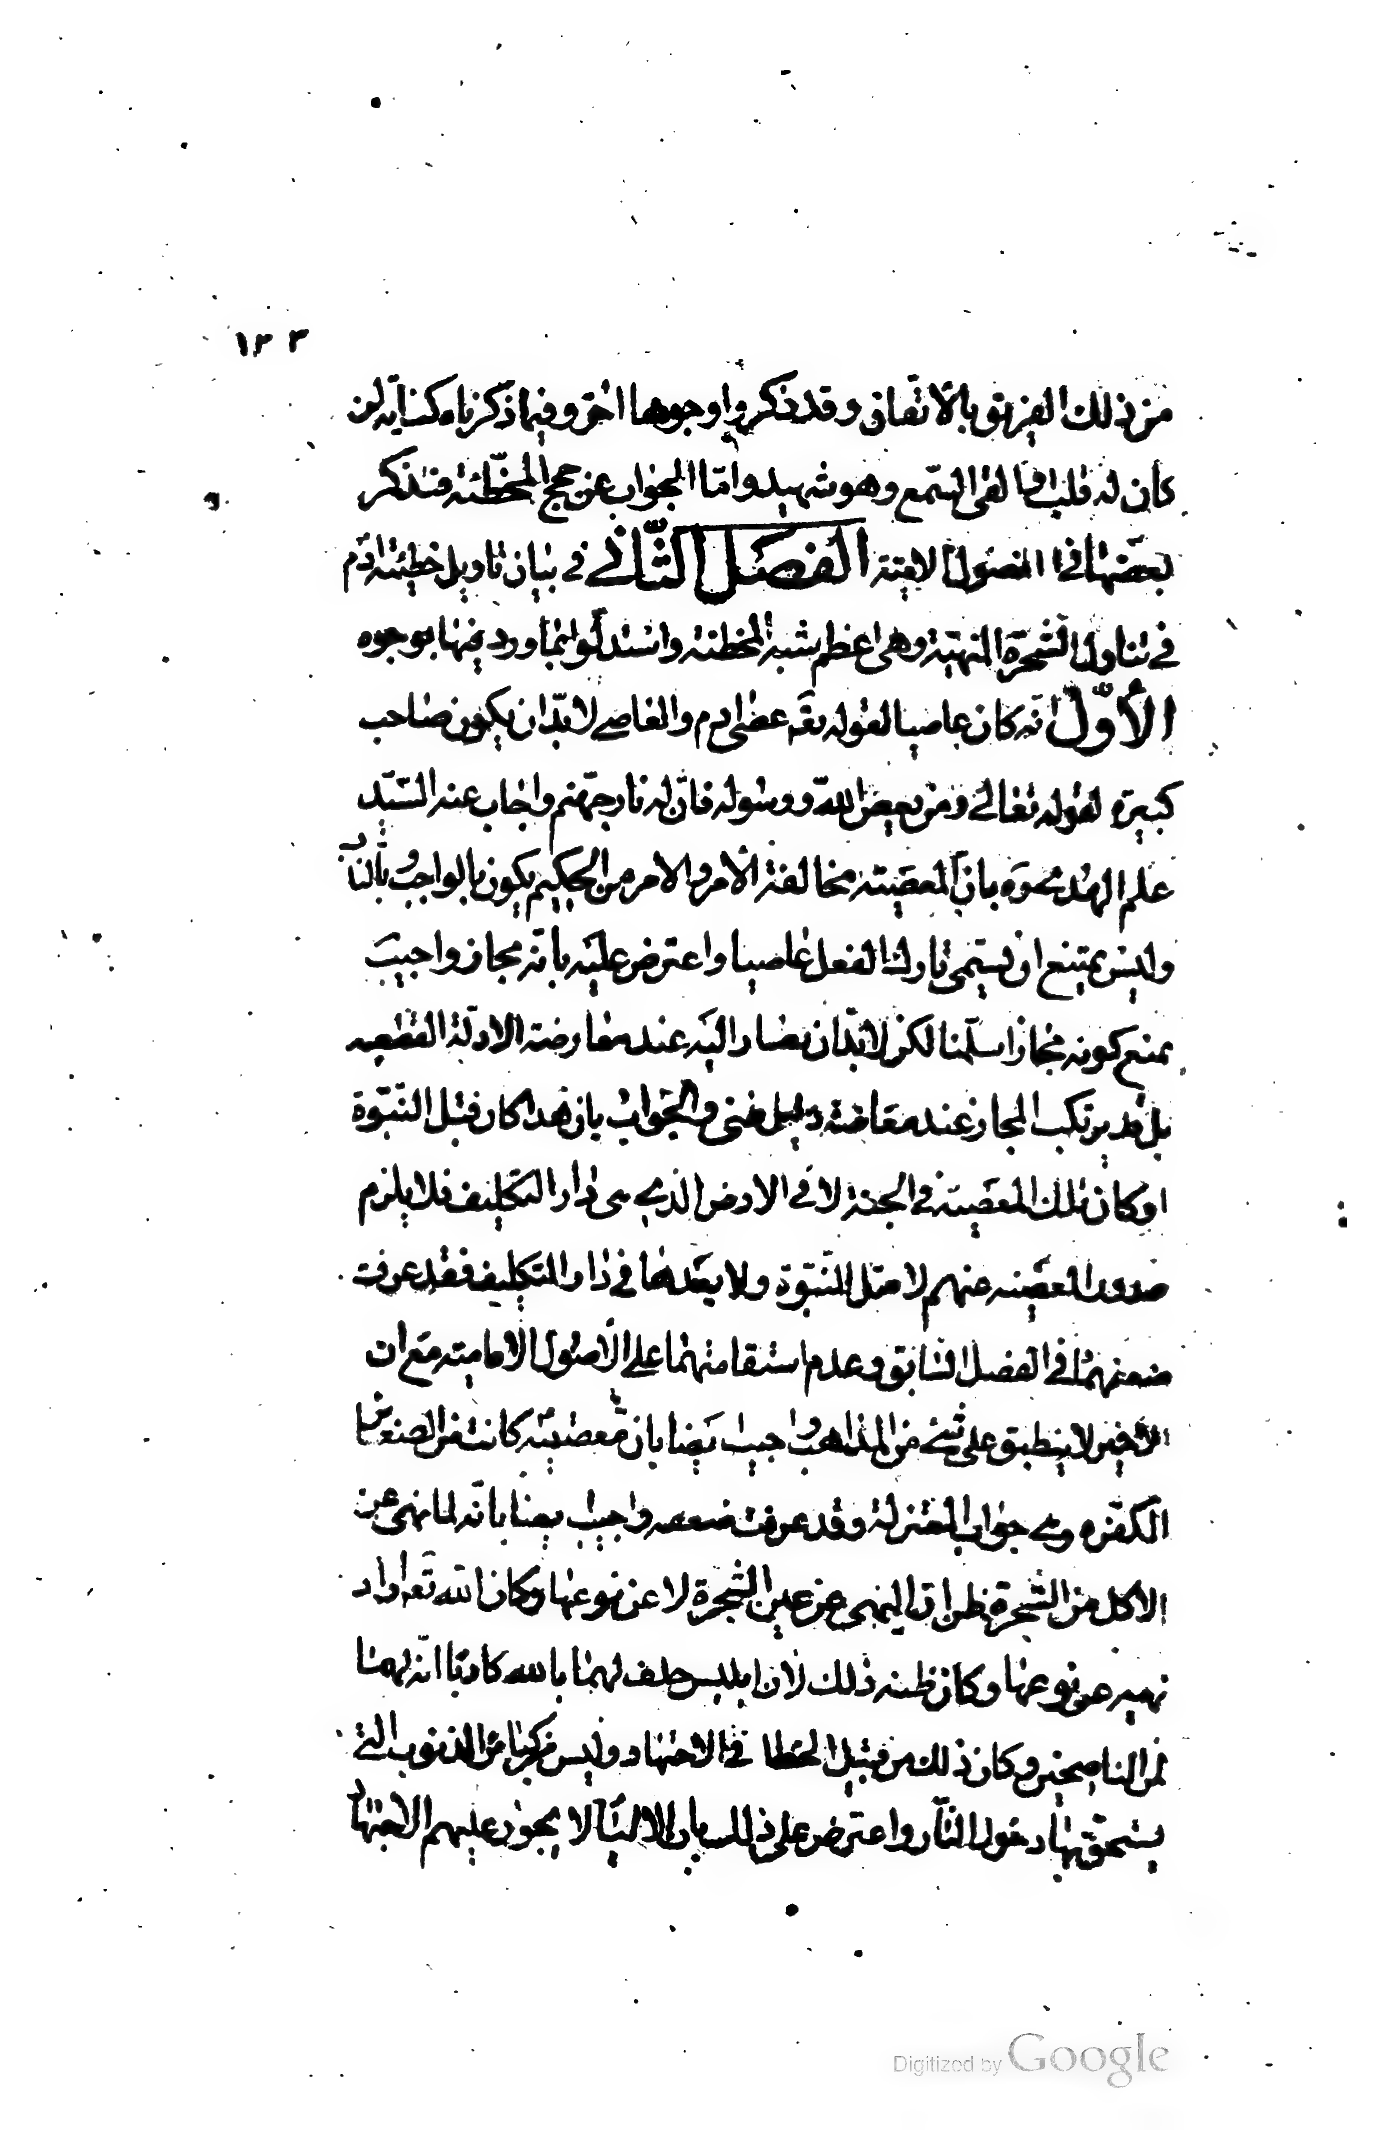 ١٢٣
من ذلك الفريقو بالاتفاق وقد ذكروا وجوها اخر وفيما ذكرناه كفاية لمن
كان له قلب او القى السمع وهو شهيد واما الجواب عن حجج المخطئة فنذكر
بعضها في الفصول الاتية الفصل الثاني في بيان تاويل خطيئة ادم
في تناول الشجرة المنهية وهي اعظم شبه المخطئة واستدلوا بما ورد فيها بوجوه
الأول انه كان عاصيا لقوله تعه عصى ادم والعاصي لا بد ان يكون صاحب
كبيرة لقوله تعالى ومن يعص الله ورسوله فان له نار جهنم واجاب عنه السيد
علم الهدى بان المعصية مخالفة الأمر والامر من الحكيم يكون بالواجب وبالند
وليس يمتنع ان يسمى تارك النفل عاصيا واعترض عليه بانه مجاز واجيب
بمنع كونه مجازا سلمنا لكن لا بد ان يصار اليه عند معارضة الادلة القطعيه
بل قد يرتكب المجاز عند معارضة دليل ظني والجواب بان هذا كان قبل النبوة
او كان تلك المعصية في الجنة لا في الارض الذي هي دار التكليف فلا يلزم
صدور المعصية عنهم لا قبل النبوة ولا بعدها في دار التكليف فقد عرفت
ضعفهما في الفصل السابق وعدم استقامتهما على الاصول الامامية مع ان
الأخير لا ينطبق على شئ من المذاهب واجيب ايضا بان معصيته كانت من الصغائر
المكفرة وهي جواب المعتزلة وقد عرفت ضعفه واجيب ايضا بانه لما نهى عن
الاكل من الشجرة ظن ان النهي عن عين الشجرة لا عن نوعها وكان الله تعه اراد
نهيه عن نوعها وكان ظنه ذلك لان ابليس حلف لهما بالله كاذبا انه لهما
لمن الناصحين وكان ذلك من قبيل الخطا في الاجتهاد وليس من كبائر الذنوب التي
يستحق بها دخول النار واعترض على ذلك بان الانبيآ لا يجوز عليهم الاجتهاد
Digitized by Google